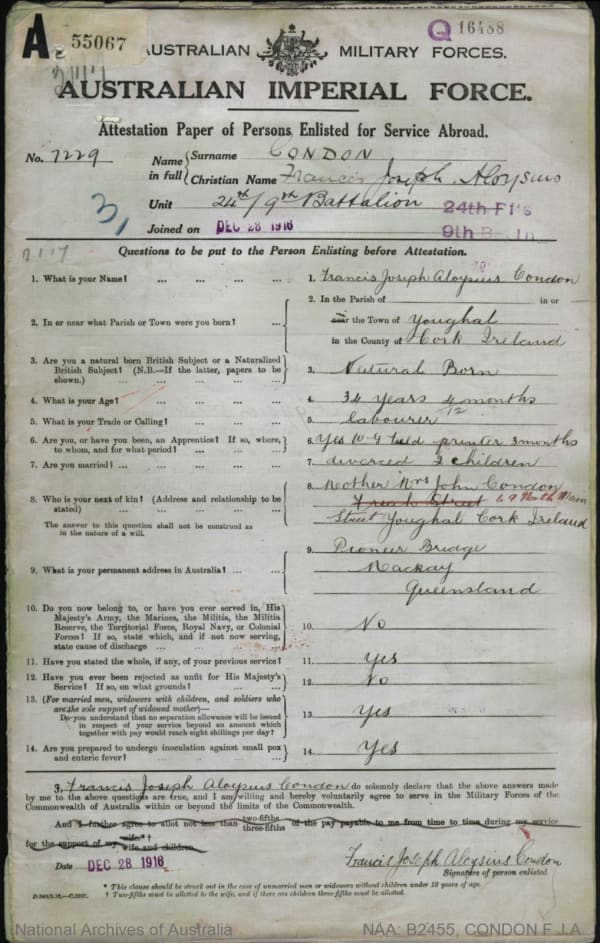 A 55067
Q 16488
AUSTRALIAN MILITARY FORCES.
AUSTRALIAN IMPERIAL FORCE.
Attestation Paper of Persons Enlisted for Service Abroad.
No. 7229
Name in full { Surname CONDON
Christian Name Francis Joseph Aloysius
Unit 24th/9th Battalion 24th F1's
9th
Joined on DEC 28 1916
2117
Questions to be put to the Person Enlisting before Attestation.
1. What is your Name? ... ... ... ... 1. Francis Joseph Aloysius Condon
2. In or near what Parish or Town were you born? ... 2. In the Parish of in or
near the Town of Youghal
in the County of Cork Ireland
3. Are you a natural born British Subject or a Naturalized British Subject? (N.B.—If the latter, papers to be shown.) ... ... ... ... 3. Natural Born
4. What is your Age? ... ... ... ... 4. 34 years 4 months
5. What is your Trade or Calling? ... ... ... 5. labourer
6. Are you, or have you been, an Apprentice? If so, where, to whom, and for what period? ... ... ... 6. Yes W F Field printer 3 months
7. Are you married? ... ... ... ... 7. divorced 2 children
8. Who is your next of kin? (Address and relationship to be stated) ... ... ... ... 8. Mother Mrs John Condon
Street 69 North Main
Street Youghal Cork Ireland
The answer to this question shall not be construed as in the nature of a will.
9. What is your permanent address in Australia? ... ... 9. Pioneer Bridge
Mackay
Queensland
10. Do you now belong to, or have you ever served in, His Majesty's Army, the Marines, the Militia, the Militia Reserve, the Territorial Force, Royal Navy, or Colonial Forces? If so, state which, and if not now serving, state cause of discharge ... ... ... ... 10. No
11. Have you stated the whole, if any, of your previous service? 11. Yes
12. Have you ever been rejected as unfit for His Majesty's Service? If so, on what grounds? ... ... 12. No
13. (For married men, widowers with children, and soldiers who are the sole support of widowed mother)—
Do you understand that no separation allowance will be issued in respect of your service beyond an amount which together with pay would reach eight shillings per day? 13. Yes
14. Are you prepared to undergo inoculation against small pox and enteric fever? ... ... ... ... 14. Yes
I, Francis Joseph Aloysius Condon do solemnly declare that the above answers made
by me to the above questions are true, and I am willing and hereby voluntarily agree to serve in the Military Forces of the
Commonwealth of Australia within or beyond the limits of the Commonwealth.
And I further agree to allot not less than two-fifths three-fifths of the pay payable to me from time to time during my service
for the support of my wife*† wife and children.
Date DEC 28 1916
Francis Joseph Aloysius Condon
Signature of person enlisted.
* This clause should be struck out in the case of unmarried men or widowers without children under 18 years of age.
† Two-fifths must be allotted to the wife, and if there are children three-fifths must be allotted.
National Archives of Australia
NAA: B2455, CONDON F J A